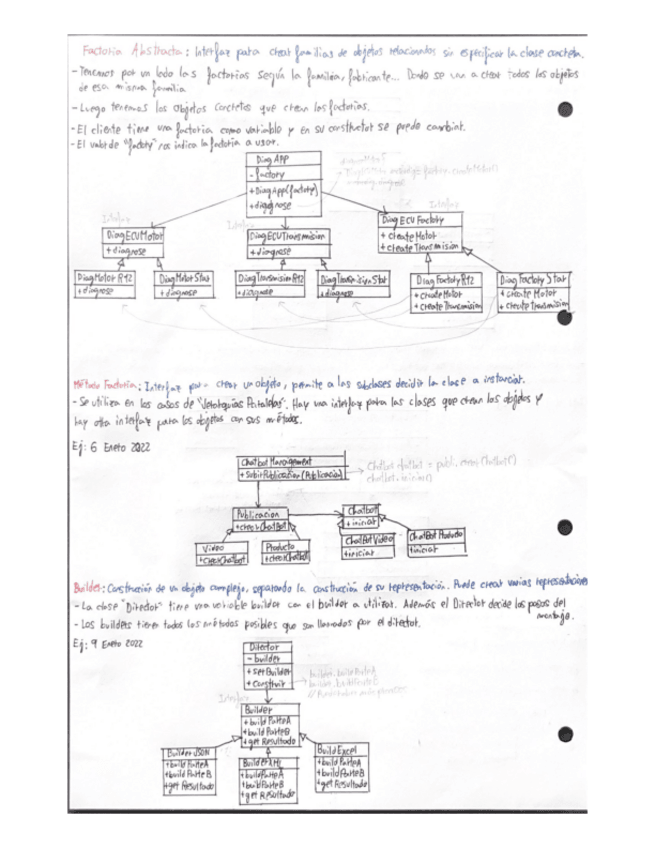 Factoria Abstracta: Interfaz para crear familias de objetos relacionados sin especificar la clase concreta.
- Tenemos por un lado las factorias según la familia, fabricante... Donde se van a crear todos los objetos
de esa misma familia
- Luego tenemos los objetos concretos que crean las factorias.
- El cliente tiene una factoria como variable y en su constructor se puede cambiar.
- El valor de "factory" nos indica la factoria a usar.
Diag APP
- factory
+ Diag App (factory)
+ diagnose
Interfaz
Diag ECU Motor
+ diagnose
Interfaz
Diag ECU Transmision
+ diagnose
Interfaz
Diag ECU Factory
+ create Motor
+ create Transmision
Diag Motor R12
+ diagnose
Diag Motor Star
+ diagnose
Diag Transmision R12
+ diagnose
Diag Transmision Star
+ diagnose
Diag Factory R12
+ create Motor
+ create Transmision
Diag Factory Star
+ create Motor
+ create Transmision
Método Factoria: Interfaz para crear un objeto, permite a las subclases decidir la clase a instanciar.
- Se utiliza en los casos de "Jerarquías Paralelas". Hay una interfaz para las clases que crean los objetos y
hay otra interfaz para los objetos con sus métodos.
Ej: 6 Enero 2022
Chatbot Management
+ subir Publicacion (Publicacion)
Chatbot chatbot = publ. crear Chatbot()
chatbot. iniciar()
Publicacion
+ crear ChatBot
Chatbot
+ iniciar
Video
+ crear Chatbot
Producto
+ crear Chatbot
ChatBot Video
+ iniciar
ChatBot Producto
+ iniciar
Builder: Construcción de un objeto complejo, separando la construcción de su representación. Puede crear varias representaciones
- La clase "Director" tiene una variable builder con el builder a utilizar. Además el Director decide los pasos del
montaje.
- Los builders tienen todos los métodos posibles que son llamados por el director.
Ej: 9 Enero 2022
Director
- builder
+ set Builder
+ Construir
builder. build Parte A
builder. build Parte B
Interfaz
Builder
+ build Parte A
+ build Parte B
+ get Resultado
Builder JSON
+ build Parte A
+ build Parte B
+ get Resultado
Builder XML
+ build Parte A
+ build Parte B
+ get Resultado
Build Excel
+ build Parte A
+ build Parte B
+ get Resultado